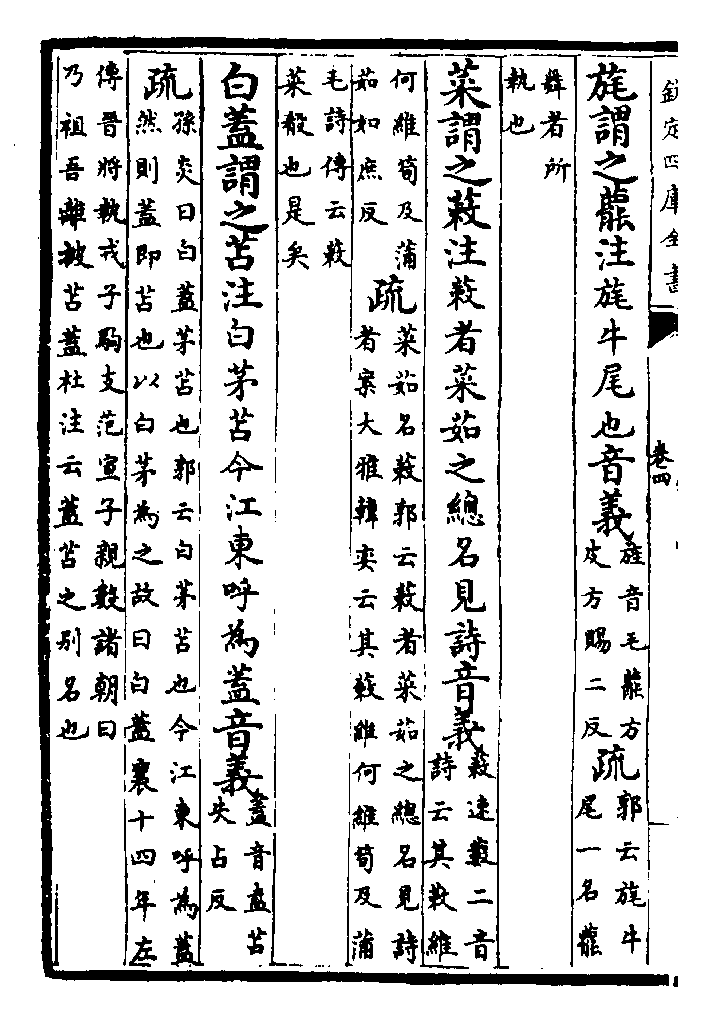 欽定四庫全書
卷四
旄謂之藣注旄牛尾也音義
旄音毛藣方
皮方賜二反
疏
郭云旄牛
尾一名藣
舞者所
執也
菜謂之蔌注蔌者菜茹之總名見詩音義
蔌速藪二音
詩云其蔌維
何維筍及蒲
茹如庶反
疏
菜茹名蔌郭云蔌者菜茹之總名見詩
者案大雅韓奕云其蔌維何維筍及蒲
毛詩傳云蔌
菜殽也是矣
白蓋謂之苫注白茅苫今江東呼為蓋音義
蓋音盍苫
失占反
疏
孫炎曰白蓋茅苫也郭云白茅苫也今江東呼為蓋
然則蓋即苫也以白茅為之故曰白蓋襄十四年左
傳晉將執戎子駒支范宣子親數諸朝曰
乃祖吾離被苫蓋杜注云蓋苫之別名也